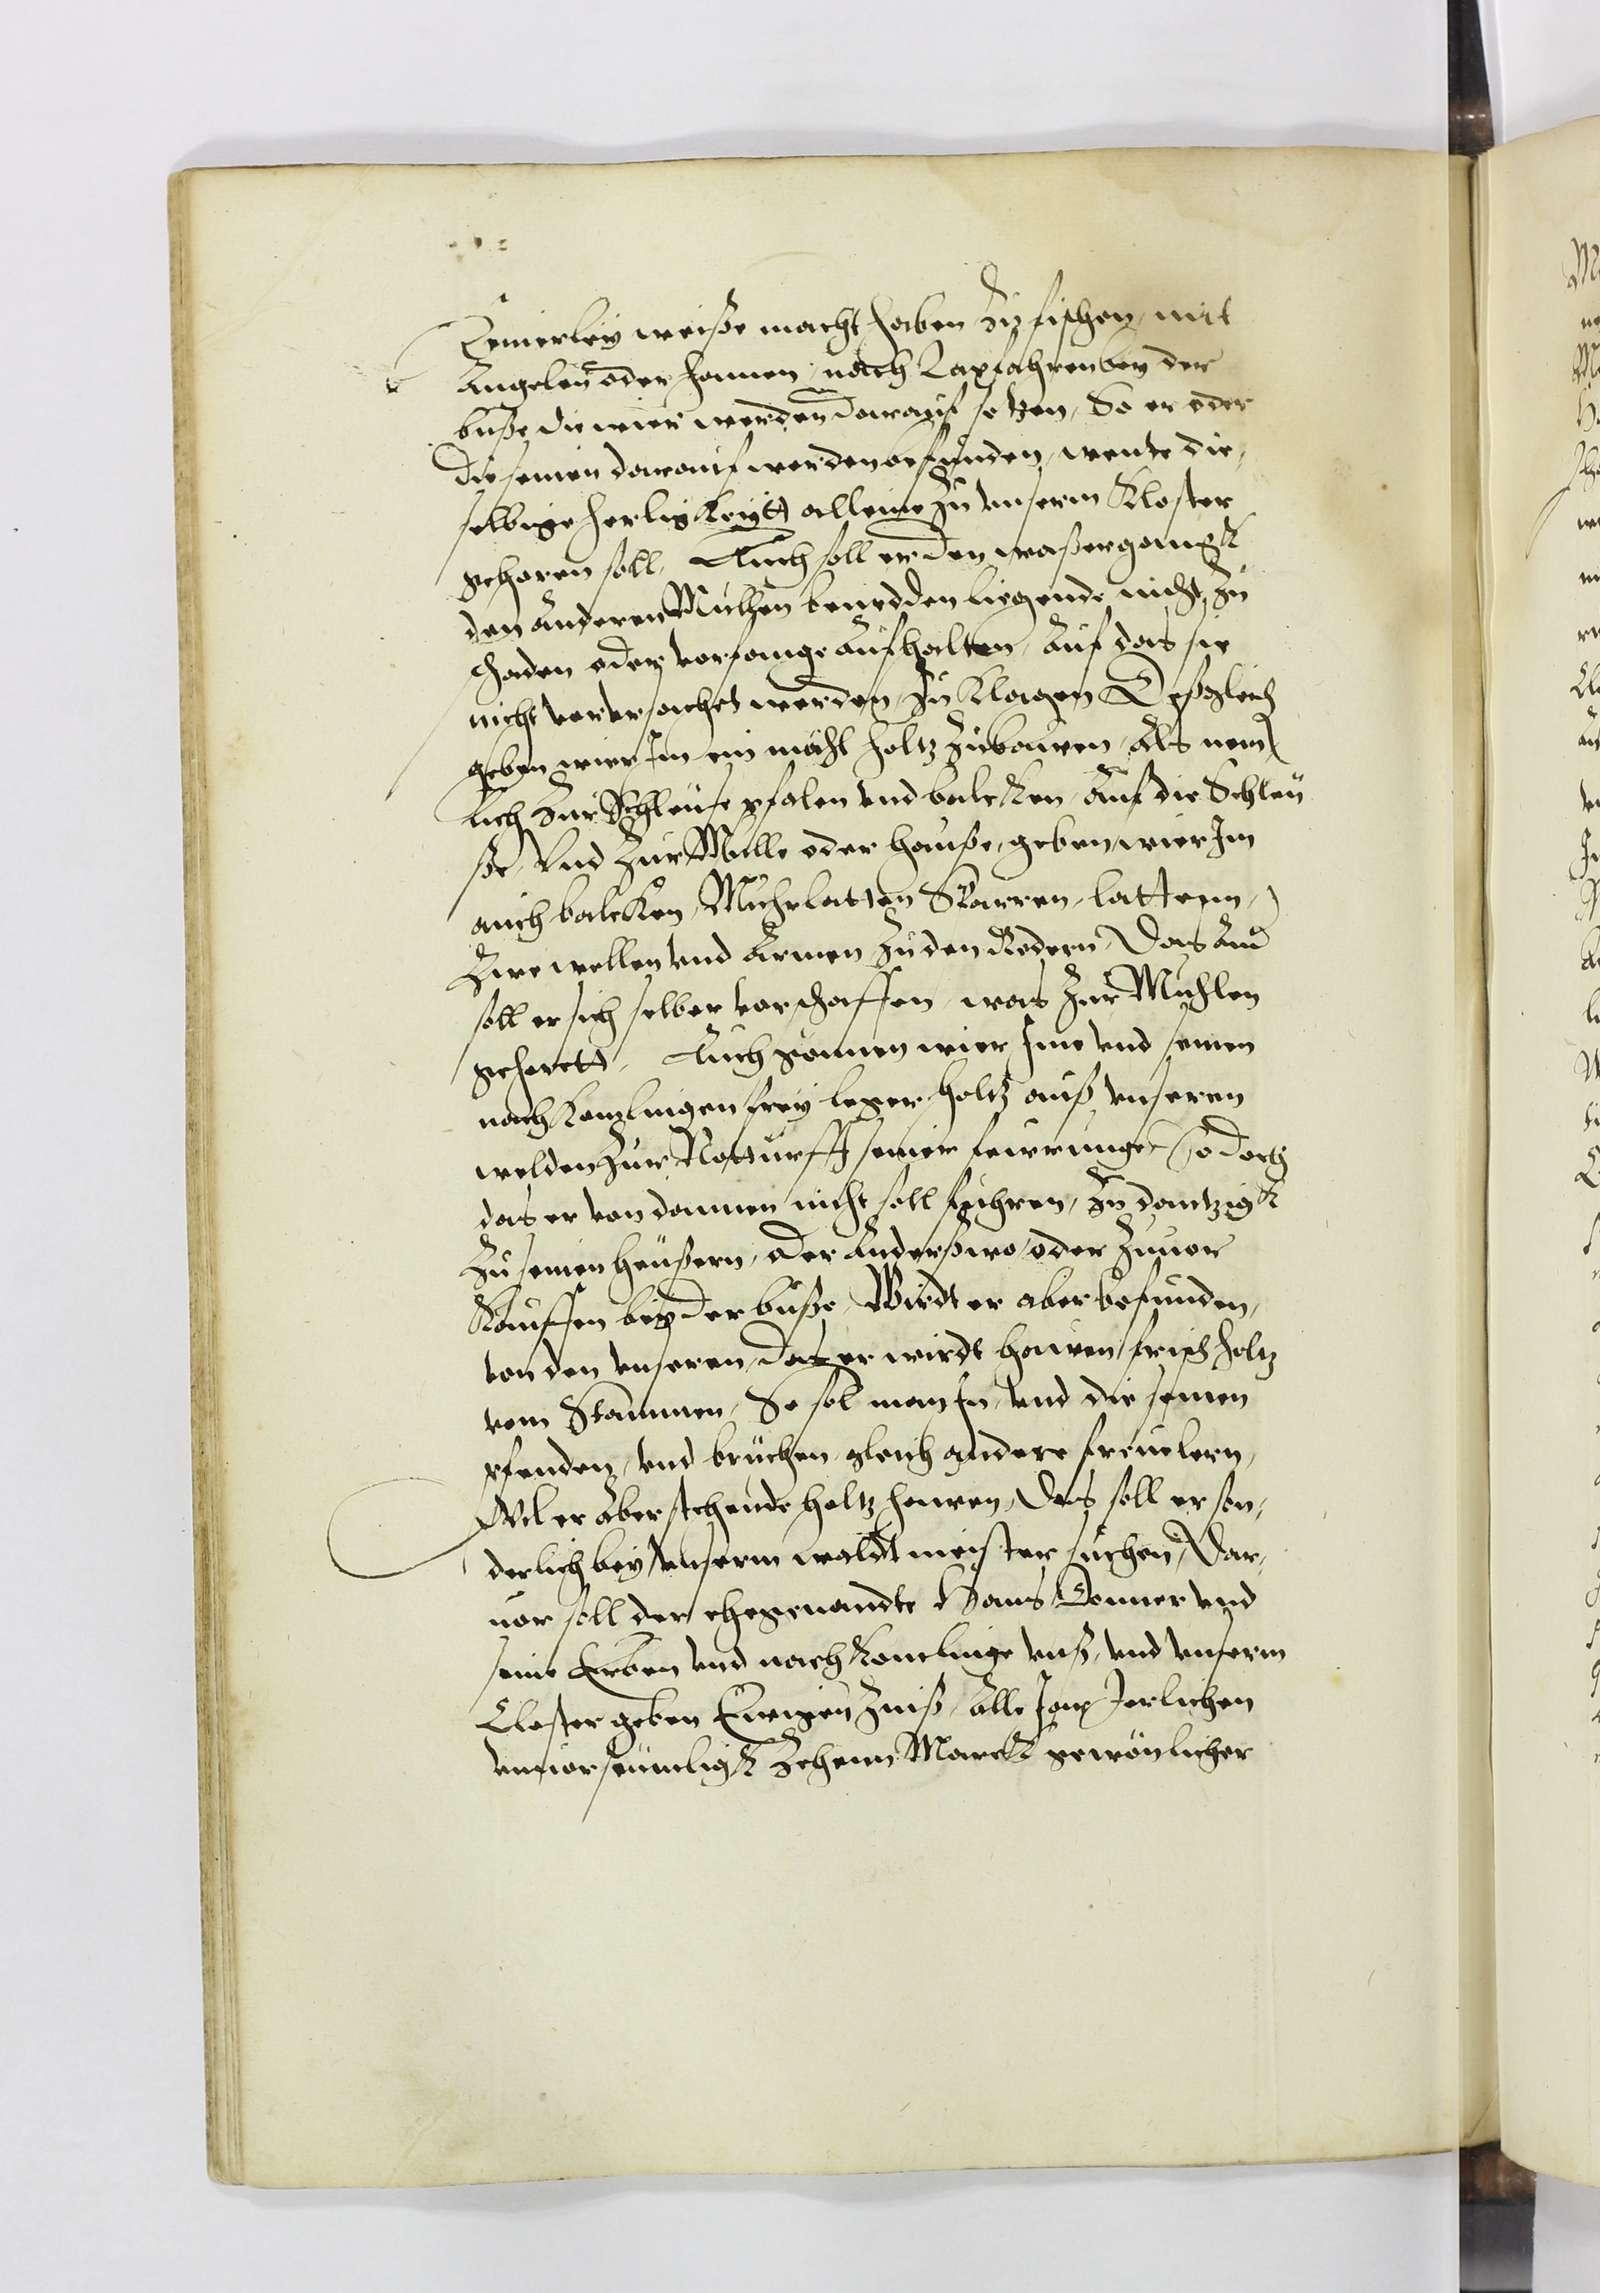 Keinerley weiße macht haben zu fischen, mit
Angelen oder hamen, noch Laxfahren bey der
buße die wier werden darauf setzen, So er oder
die seinen darauf werden befunden, wente die,
selbige herligkeytt alleine zu unserm Kloster
gehoren soll, Auch soll er den waßergangk
den anderen Mulhen beneddenliegende nicht, zu
schaden oder vorfange aufhalten, auf das sie
nicht verursachet werden, zu klagen Deßgleich
geben wier Jm ein mahl holtz zubauwen, als nem
lich zur Schleuse pfalen und balcken, Auf die Schleu
ße, Und zur Mulle oder hauße, geben wier Jm
auch balcken, Muhrlatten Sparren, lattenn,
Zwe wellen und Armen zu den Redern, Das and
soll er sich selber vorschaffen, was zur Muhlen
gehorett, Auch gonnen wier Jme und seinen
nachkomlingen frey leger holtz auß unseren
welden zur Notturfft seiner feurunge, So doch
das er von dannen nicht soll fuhren, zu dantzigk
zu seinen heußern, oder anderßwo, oder zuvor
kauffen bey der buße, Wirdt er aber befunden,
von den unseren, das er wirdt hauwen frisch holtz
vom Stammen, So sol man Jn, und die seinen
pfenden, und bruchen gleich andere freuelern,
Wil er aber stehende holtz hauwen, Das soll er son,
derlich bey unserm waldtmeister suchen, Dar,
uor soll der ehegenandte Hans Donner und
seine Erben und nachkomlinge unß, und unserm
Closter geben Ewigen Zinß, Alle Jar Jerlichen
unuorseumligk Zehenn Marck gewönlicher